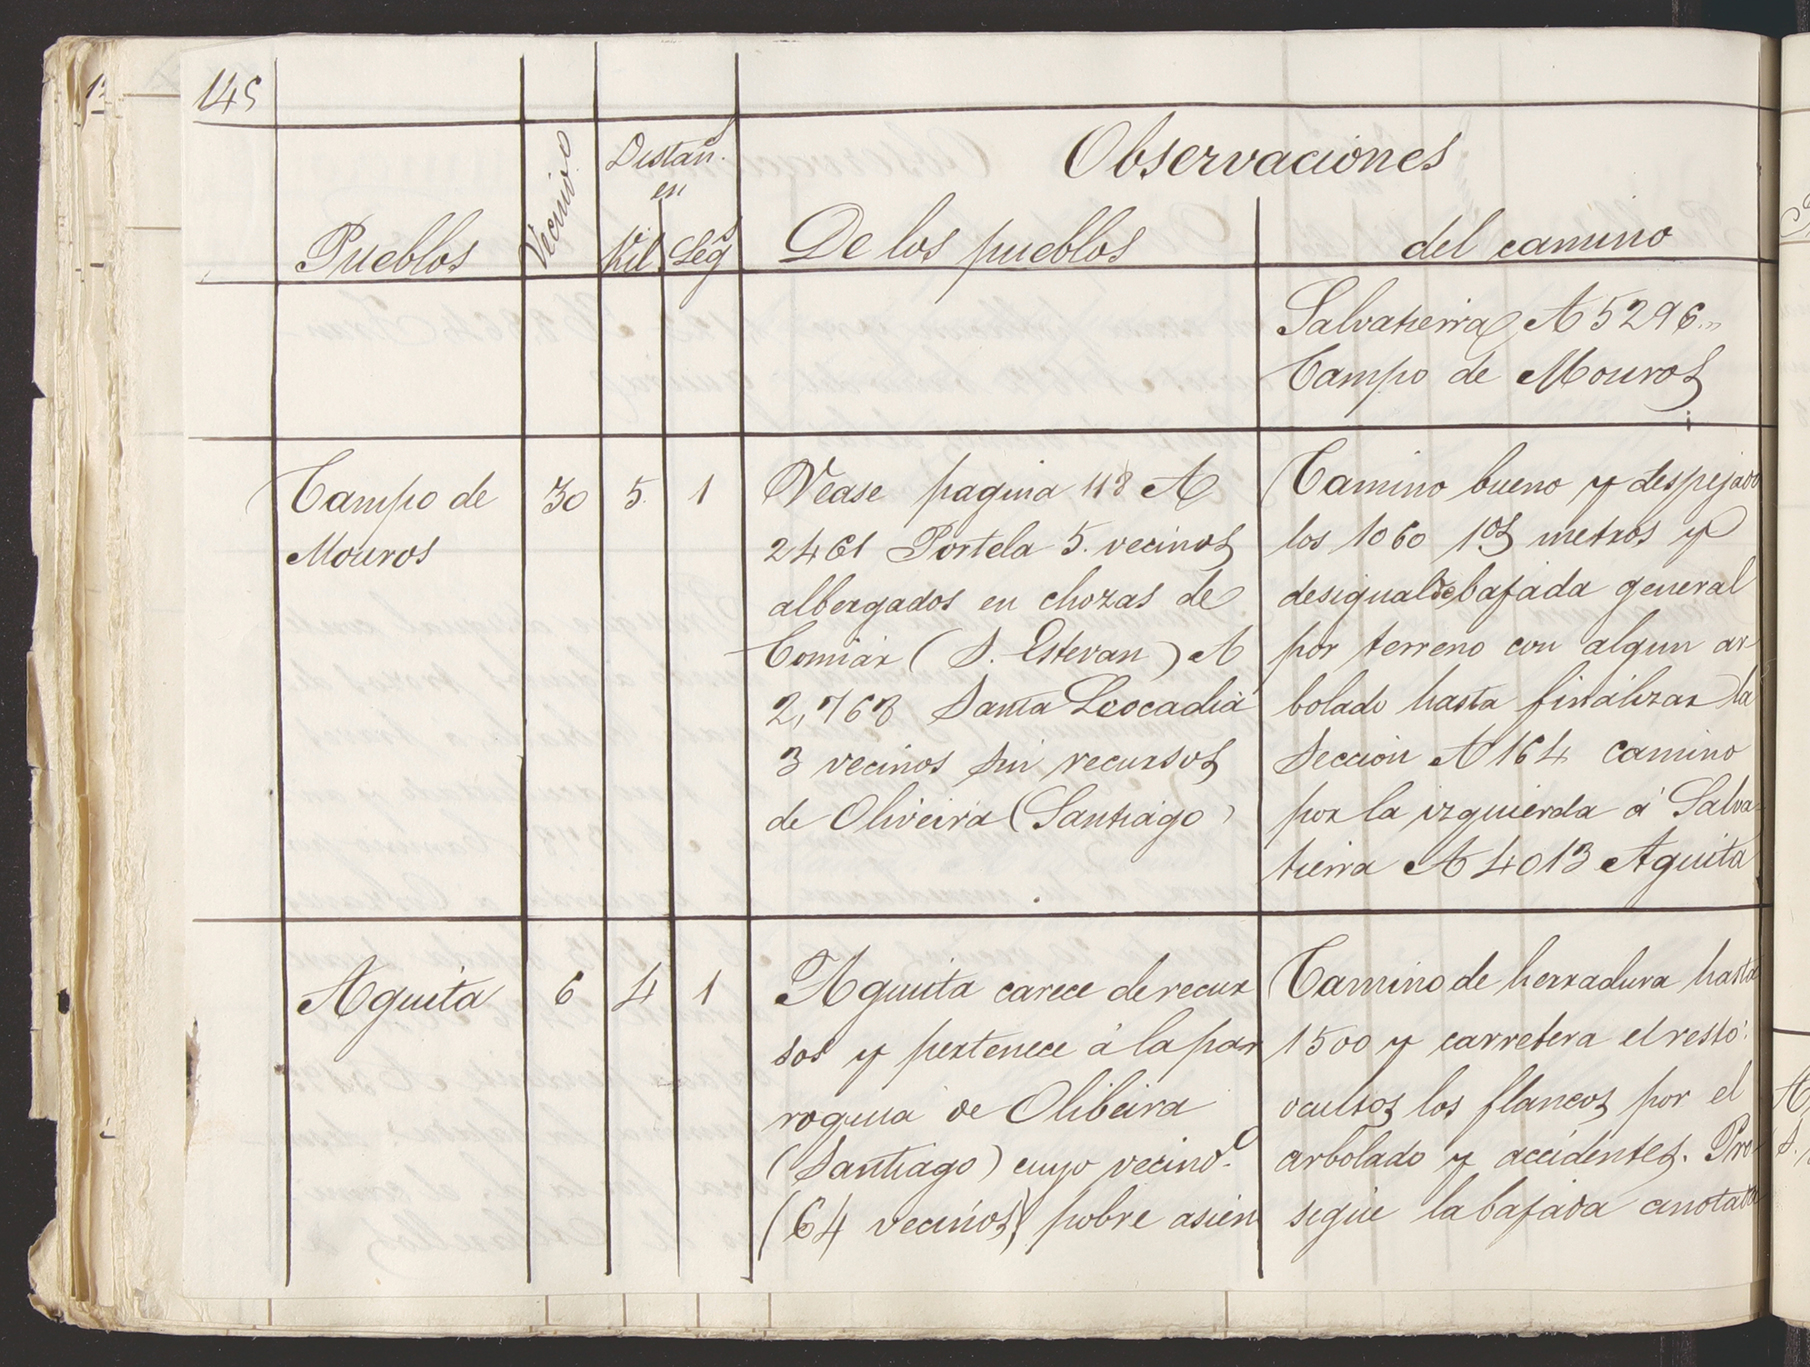 145
Observaciones
Distan.s
en
Pueblos
Vecind.o
Kil.
Leg.s
De los pueblos
del camino
Salvatierra, A 5296 m
Campo de Mouros
Campo de
Mouros
30
5.
1
Vease pagina 118 A
2461 Portela 5. vecinos
albergados en chozas de
Comiar (S. Estevan) A
2,768 Santa Leocadia
3 vecinos sin recursos
de Oliveira (Santiago)
Camino bueno y despejado
los 1060 1os metros y
desigual de bajada general
por terreno con algun ar
bolado hasta finalizar la
seccion A 164 camino
por la izquierda á Salva-
tierra A 4013 Aguita
Aguita
6
4
1
Aguita carece de recur
sos y pertenece á la par
roquia de Olibeira
(Santiago) cuyo vecind.o
(64 vecinos) pobre asien
Camino de herradura hasta
1500 y carretera el resto:
ocultos los flancos por el
arbolado y accidentes. Pro
sigue la bajada anotada